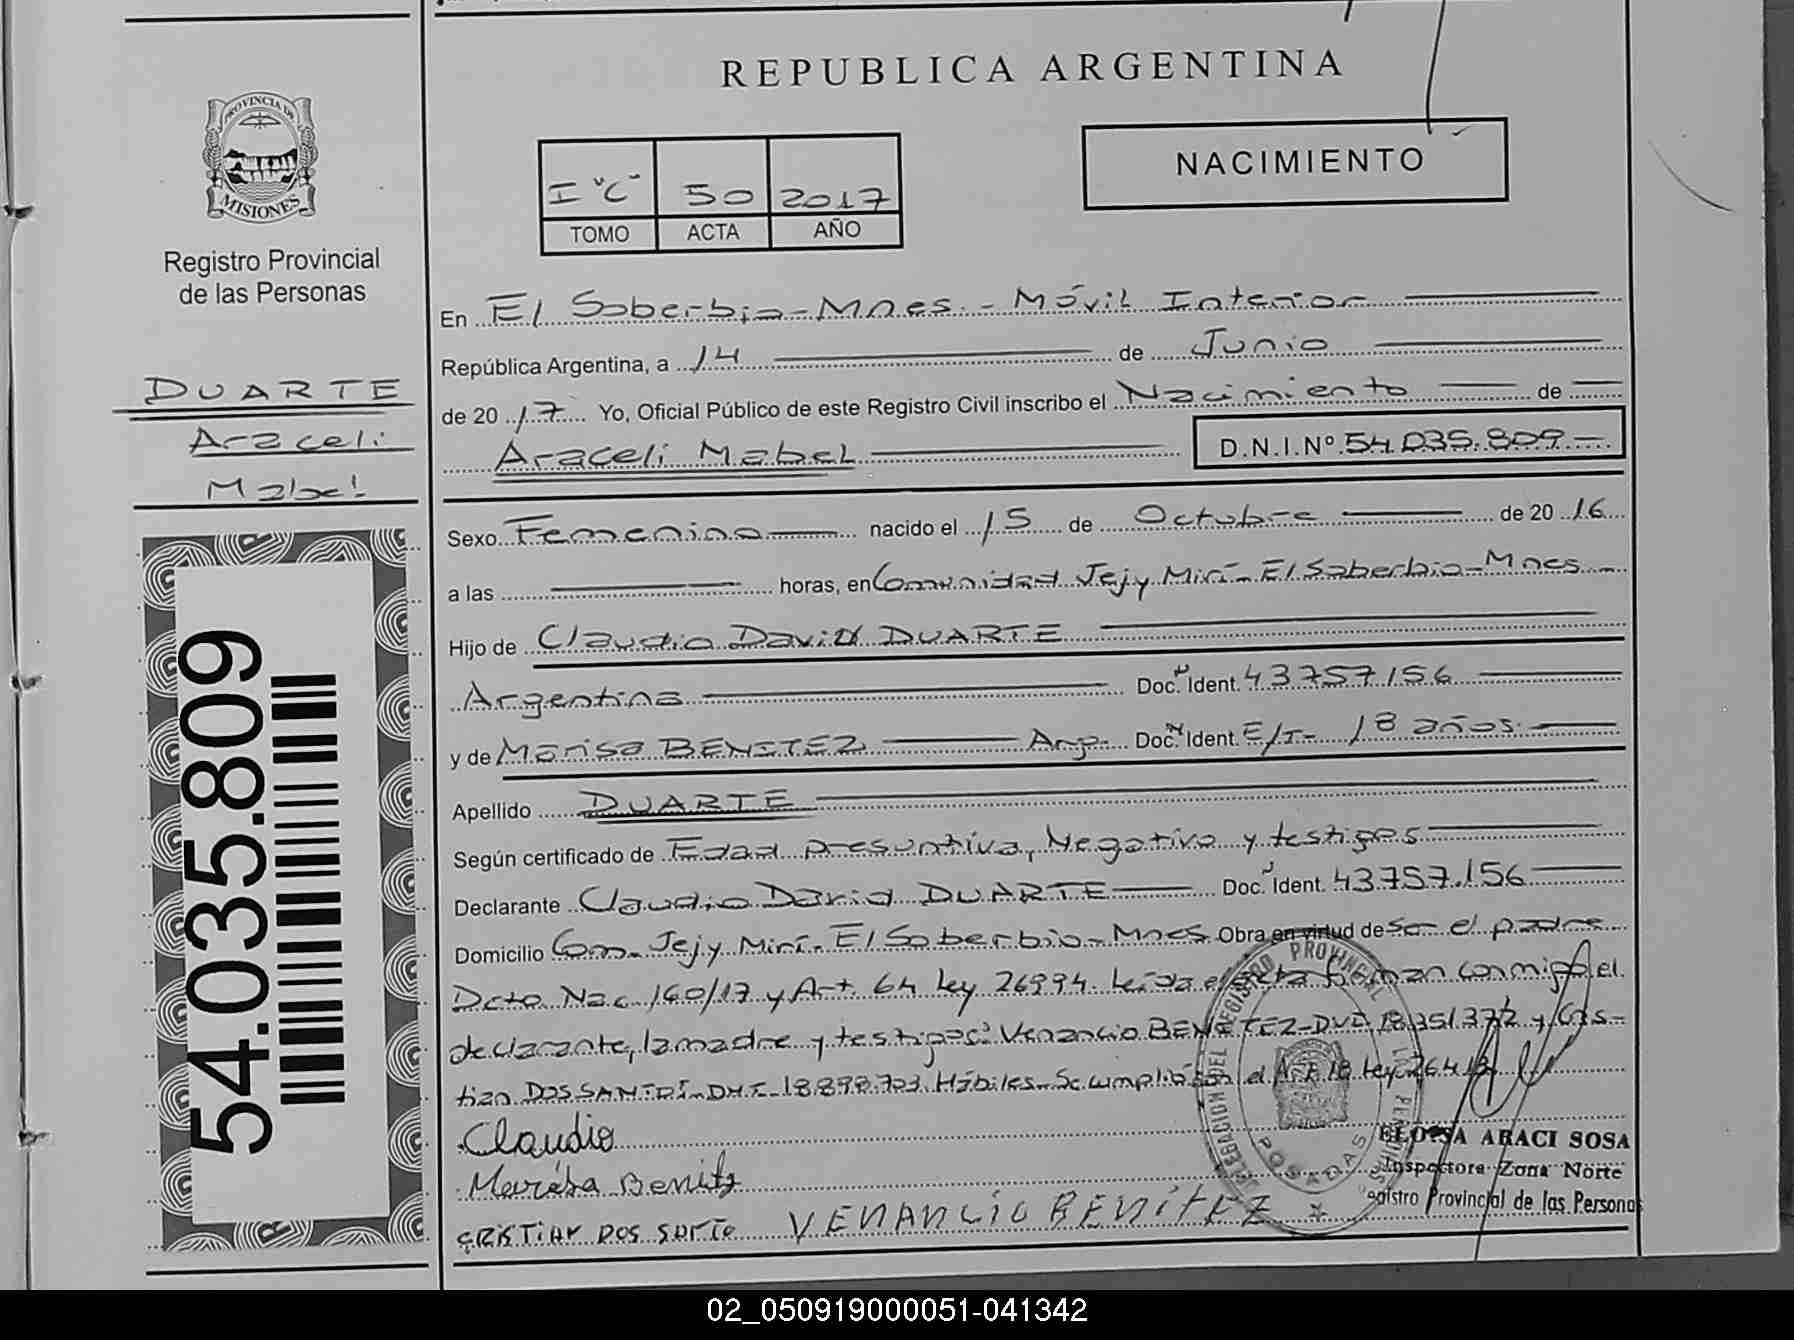 REPUBLICA ARGENTINA
PROVINCIA DE
MISIONES
Registro Provincial
de las Personas
DUARTE
Araceli
Mabel
54.035.809
I "C" 50 2017
TOMO ACTA AÑO
NACIMIENTO
En El Soberbio - Mnes. - Móvil Interior
República Argentina, a 14 de Junio
de 2017 Yo, Oficial Público de este Registro Civil inscribo el Nacimiento de
Araceli Mabel D.N.I.Nº 54.035.809
Sexo Femenino nacido el 15 de Octubre de 2016
a las horas, en Comunidad Jejy Mirí - El Soberbio - Mnes -
Hijo de Claudio David DUARTE
Argentina Doc. Ident. 43757156
y de Marisa BENITEZ Arg. Doc. Ident. E/T - 18 años
Apellido DUARTE
Según certificado de Edad presuntiva, Negativo y testigos
Declarante Claudio David DUARTE Doc. Ident. 43757.156
Domicilio Com. Jejy Mirí - El Soberbio - Mnes Obra en virtud de ser el padre
Dcto Nac 160/17 y Art 64 Ley 26994. Leída el acta firman conmigo el
declarante, la madre y testigos: Venancio BENITEZ - DNI 18.351.372 y Cris-
tian DOS SANTOS - DNI - 18.898.723 Hábiles. Se cumplió con el Art 18 Ley 26413
Claudio
Marisa Benitz
CRISTIAN DOS
VENANCIO BENÍTEZ
DELEGACION DEL REGISTRO PROVINCIAL
POSADAS
ELOISA ARACI SOSA
Inspectora Zona Norte
Registro Provincial de las Personas
02_050919000051-041342